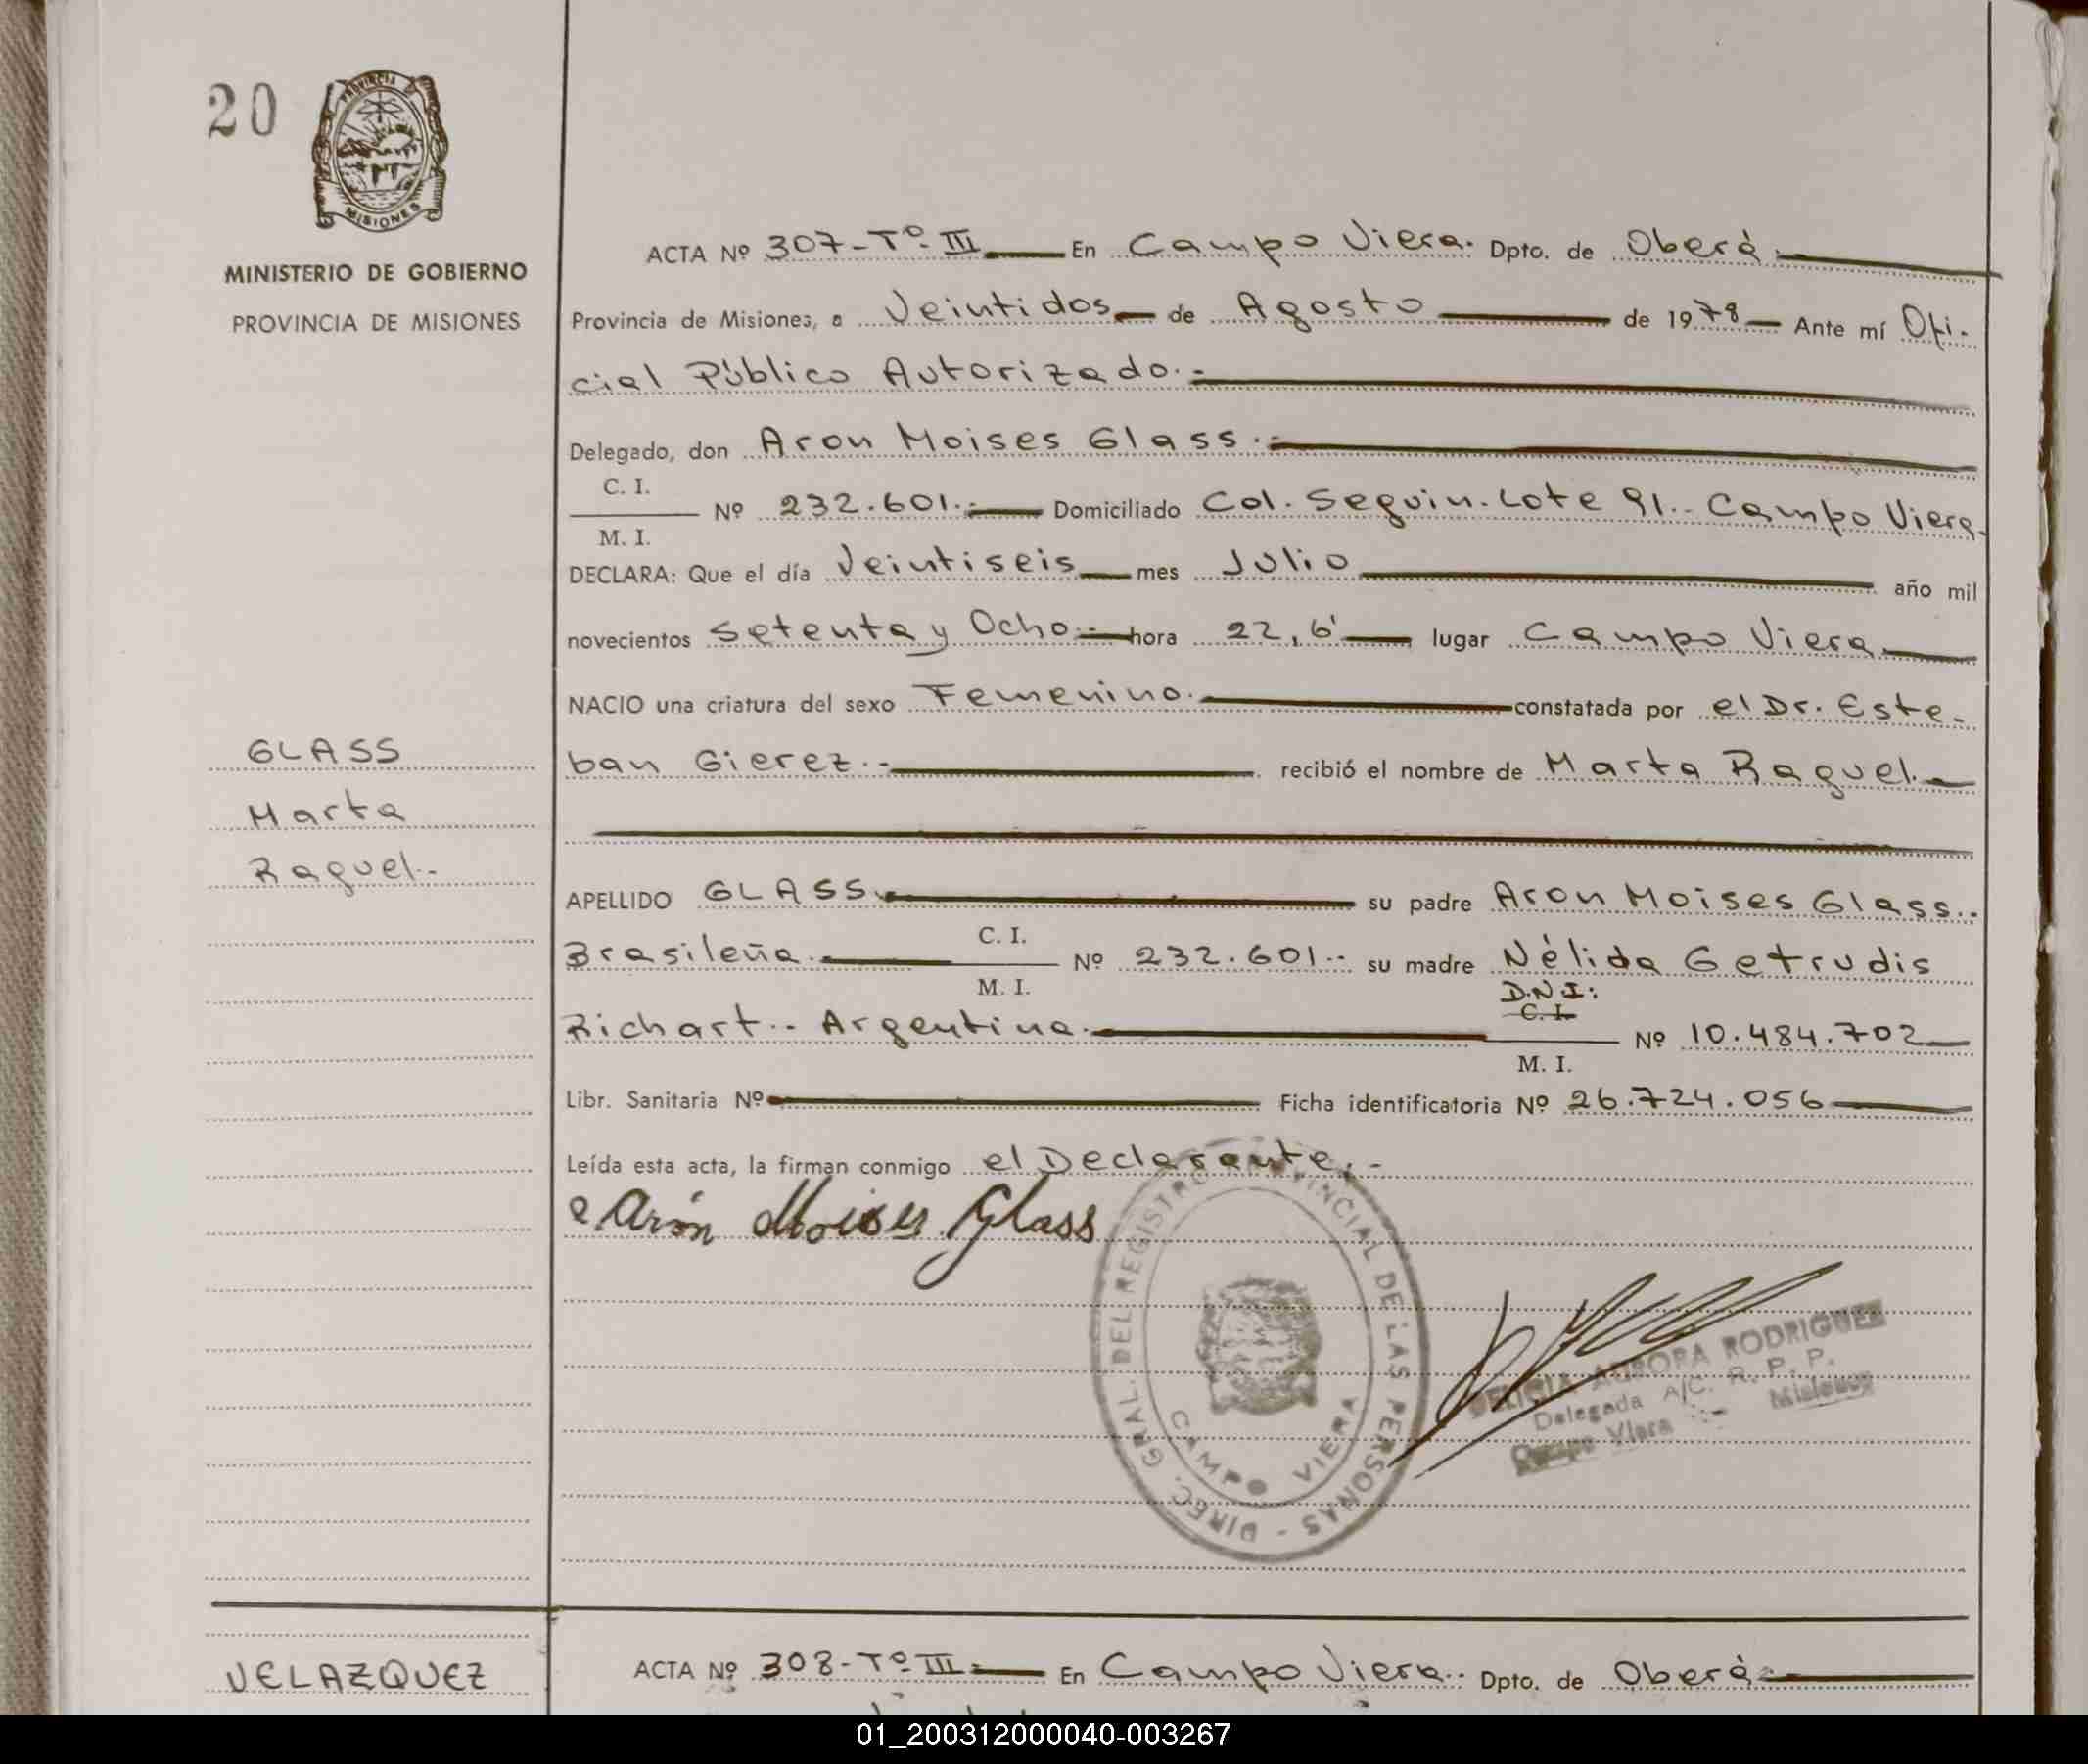 20
PROVINCIA
MISIONES
MINISTERIO DE GOBIERNO
PROVINCIA DE MISIONES
ACTA Nº 307-Tº III En Campo Viera. Dpto. de Oberá
Provincia de Misiones, a Veintidos de Agosto de 1978 Ante mí Ofi-
cial Público Autorizado.-
Delegado, don Aron Moises Glass.-
C. I.
M. I.
Nº 232.601.- Domiciliado Col. Seguin. Lote 91.- Campo Viera-
DECLARA: Que el día Veintiseis mes Julio año mil
novecientos Setenta y Ocho.- hora 22,6' lugar Campo Viera
NACIO una criatura del sexo Femenino. constatada por el Dr. Este-
ban Gierez.- recibió el nombre de Marta Raquel.
GLASS
Marta
Raquel.-
APELLIDO GLASS. su padre Aron Moises Glass.-
Brasileña. C. I.
M. I.
Nº 232.601.- su madre Nélida Getrudis
Richart.- Argentina. D.N.I:
C. I.
M. I.
Nº 10.484.702
Libr. Sanitaria Nº Ficha identificatoria Nº 26.724.056
Leída esta acta, la firman conmigo el Declarante.-
Arón Moises Glass
DIREC. GRAL. DEL REGISTRO PROVINCIAL DE LAS PERSONAS -
CAMPO VIERA
DELICIA AURORA RODRIGUEZ
Delegada A/C. R. P. P.
Campo Viera -:- Misiones
VELAZQUEZ
ACTA Nº 308-Tº III En Campo Viera.- Dpto. de Oberá
01_200312000040-003267